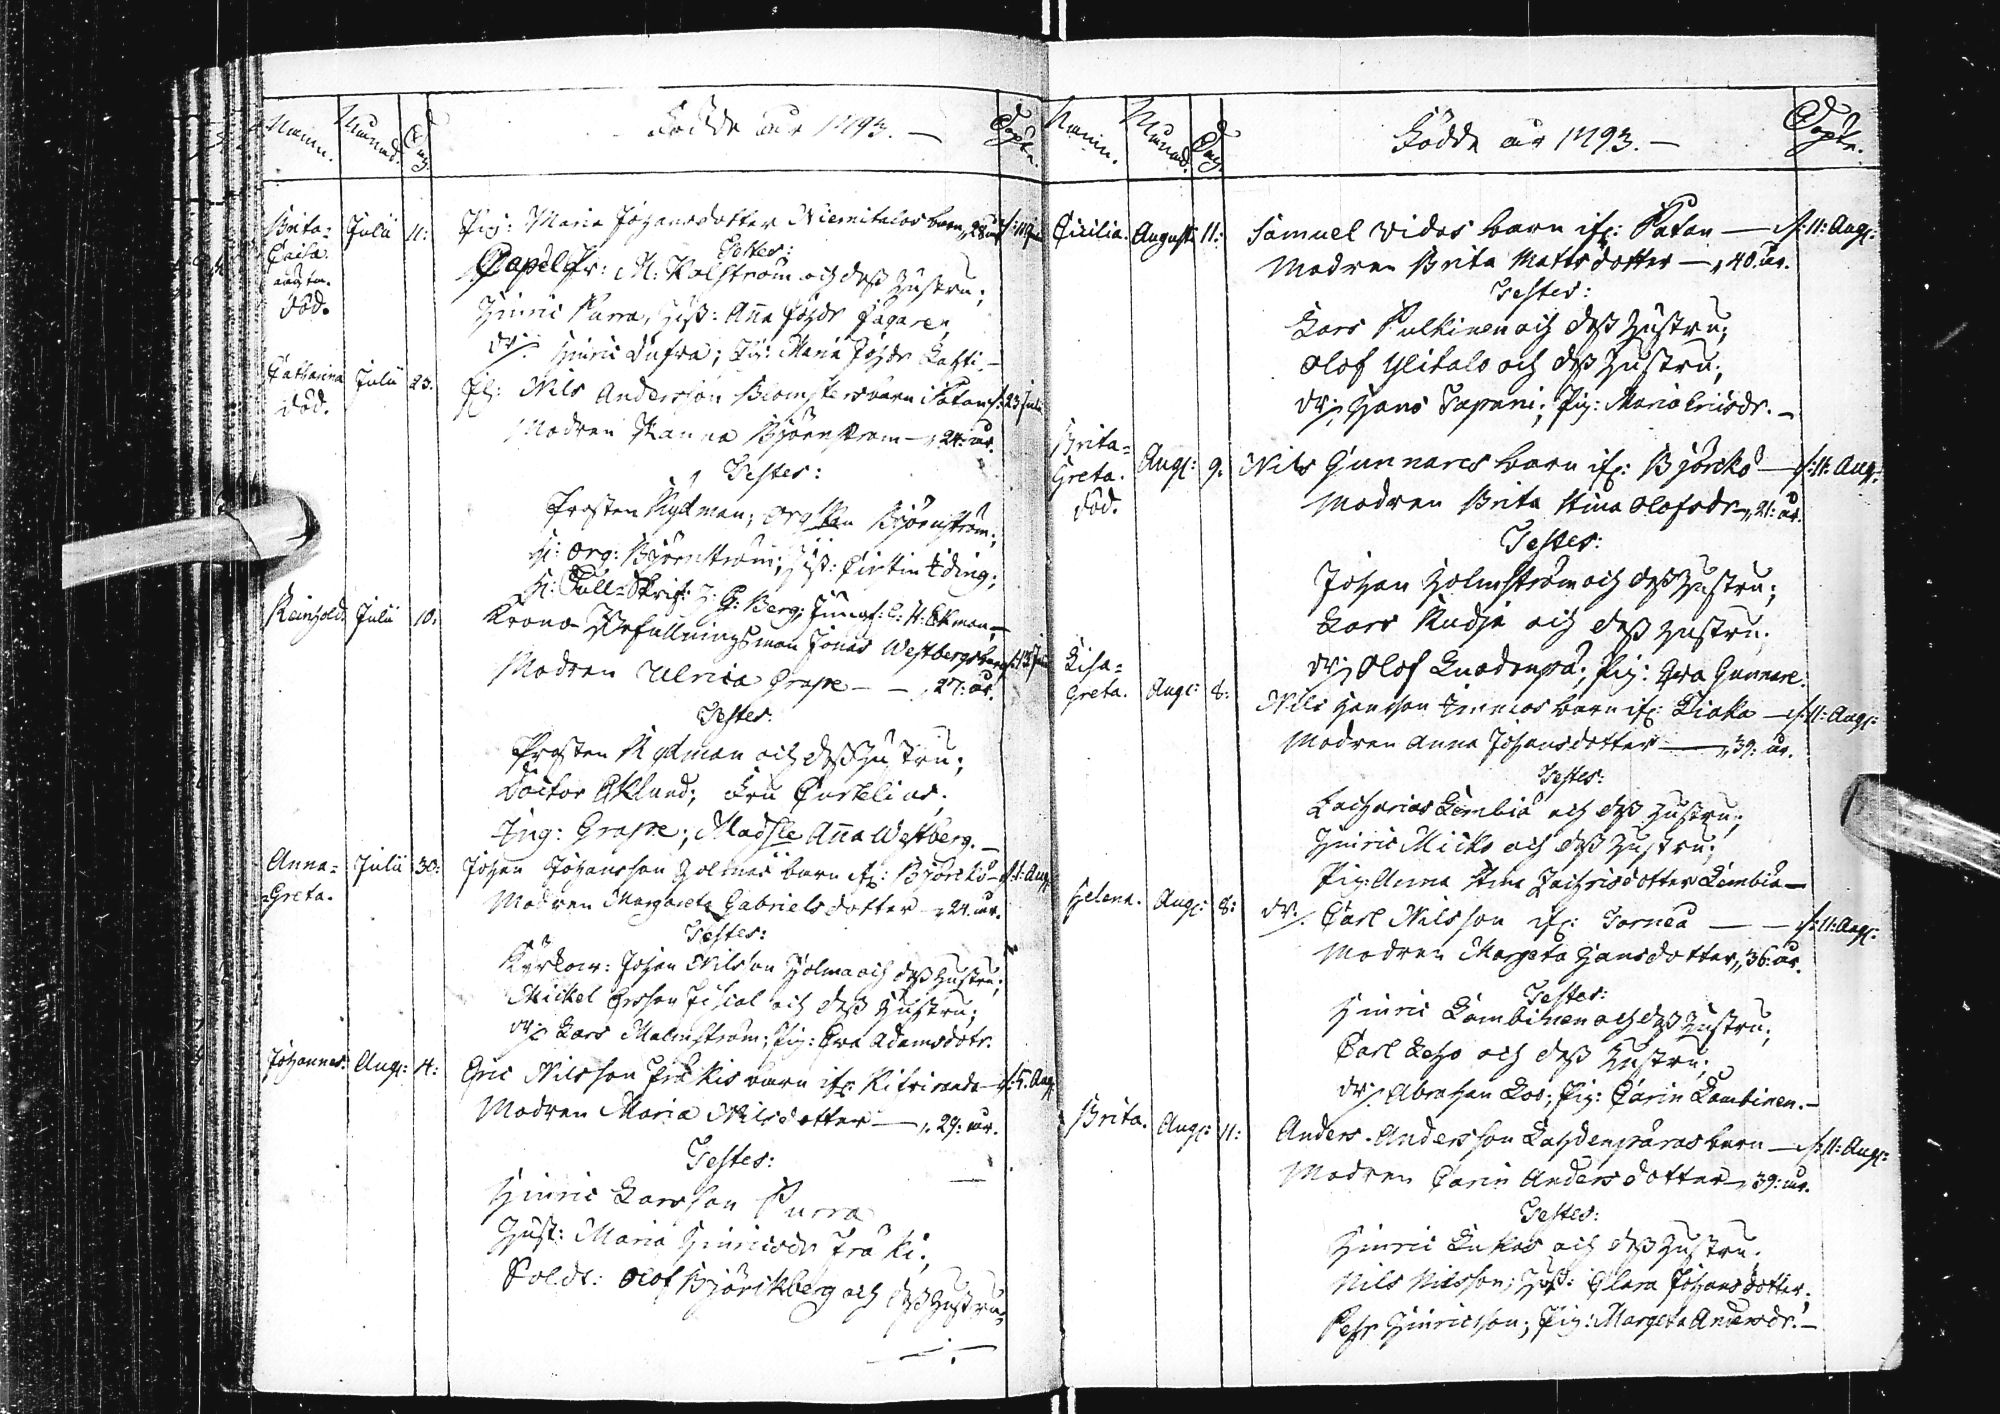 Namn. Månad. Dag. Födde år 1793. — Döpte.
Brita= Julii 11: Pig: Maria Johansdotter Niemitalos barn, 28 år
Caisa
död.
Testes:
Capell Pr: M: Kolström och dess hustru;
Hinric Purra, Hust: Anna Johsdr Fågaren
Dr: Hinric Lufva; Pig: Maria Johsdr Lahti. —
Catharina Julii 23. Nils Andersson Blomsters barn i Patan 23 Julii
död.
Modren Hanna Björnström — 24: år.
Testes:
Prosten Rydman; Björnström;
H: Org: Björnström; Hust: Cirstin Eding;
H: Tull=Skrif: Berg; Jungf: C: H: Ekman —
Reinhold. Julii 10: Krono Befallningsman Jonas Westbergs barn
Modren Ulrica Grape — — 27: år.
Testes:
Prosten Rydman och dess Hustru;
Doctor Eklund; Fru Curtelius;
Ing: Grape; Madslle Anna Westberg. —
Anna= Julii 30: Johan Johansson Holmas barn if: Björckö — d: 1: Aug:
Greta.
Modren Margareta Gabrielsdotter — 24. år.
Testes:
Kyrkow: Johan Nilsson Holma och dess Hustru;
Mickel Ersson Fiscal och dess Hustru;
Dr: Lars Malmström; Pig: Eva Adamsdotr.
Johannes. Aug: 4: Eric Nilsson Präkis barn if: Kitkiranda — d: 5. Aug:
Modren Maria Nilsdotter — 29: år.
Testes:
Hinric Larsson Purra
Hust: Maria Hinricsdr Präki;
Soldt: Olof Björckberg och dess hustru.
Namn. Månad. Dag. Födde år 1793. — Döpte.
Cicilia. Augusti 11: Samuel Vidos barn if: Patan — d: 11: Aug:
Modren Brita Mattsdotter — 40. år.
Testes:
Lars Pulkinen och dess Hustru;
Olof Ylitalo och dess Hustru;
Dr: Hans Tapani; Pig: Maria Ericsdr. —
Brita= Aug: 9: Nils Gunnares barn if: Björckö — d: 11: Aug:
Greta.
död.
Modren Brita Stina Olofsdr — 21: år.
Testes:
Johan Holmström och dess Hustru;
Lars Rudja och dess Hustru;
Dr: Olof Luodonpä; Pig: Eva Gunnare.
Lisa= Aug: 8: Nils Hansson barn if: Liaka — d: 11: Aug:
Greta.
Modren Anna Johansdotter — 39: år.
Testes:
Zacharias Kembiä och dess Hustru;
Hinric Micko och dess Hustru;
Pig: Anna Stina Zachrisdotter Kembiä —
Helena. Aug: 8: Dr: Carl Nilsson if: Torneå — — d: 11: Aug:
Modren Margeta Hansdotter, 36. år.
Testes:
Hinric Lambinen och dess Hustru;
Carl Leho och dess Hustru;
Dr: Abraham Loo; Pig: Carin Lambinen. —
Brita. Aug: 11: Anders Andersson Lahdenperas barn — d: 11: Aug:
Modren Carin Andersdotter — 39: år.
Testes:
Hinric Lukas och dess Hustru.
Nils Nilsson; Hust: Clara Johansdotter;
Pehr Hinricsson; Pig: Margeta Andersdr. —